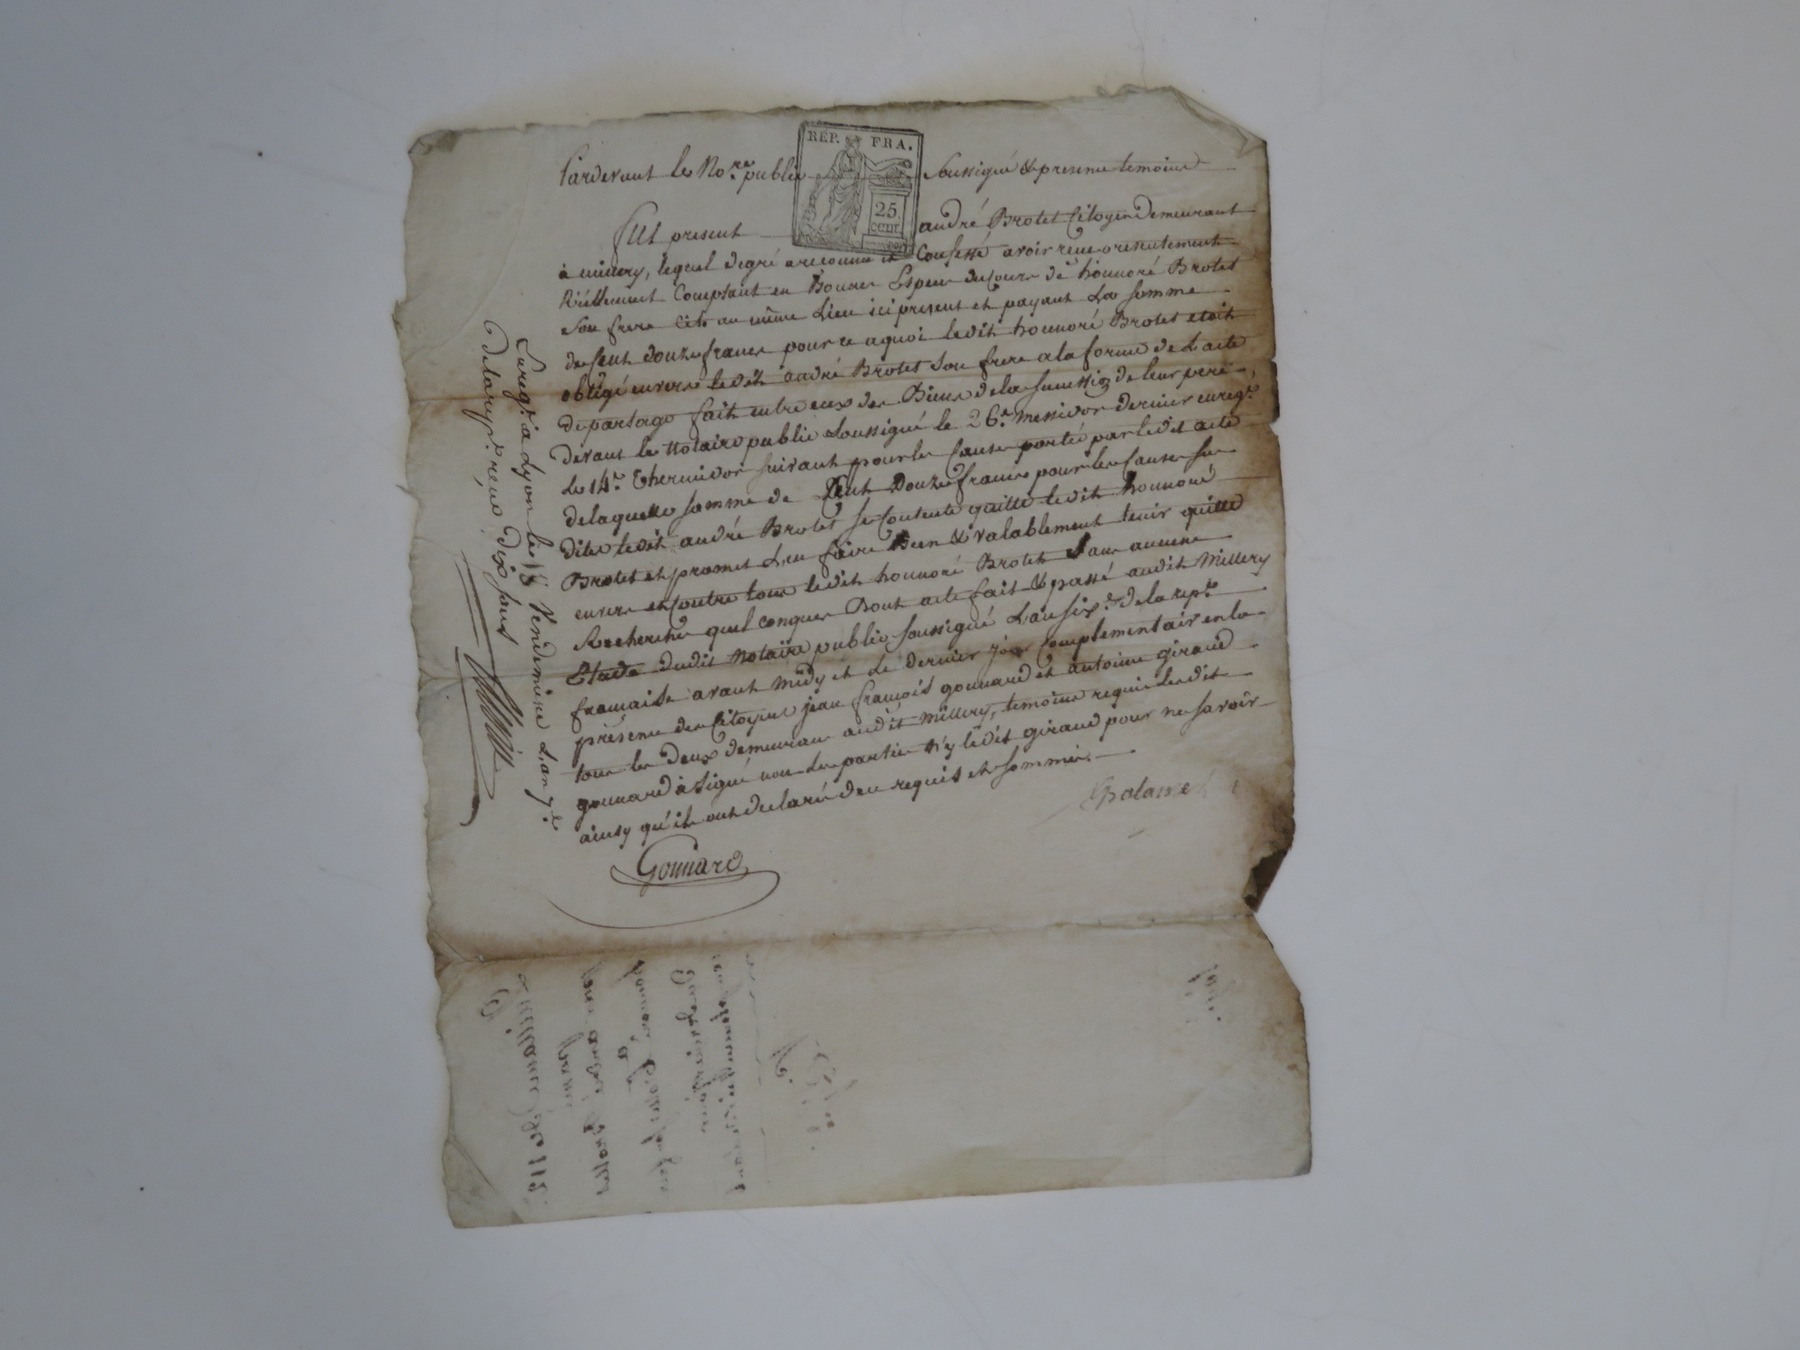 Pardevant les No.re public soussigné & presens temoins
REP. FRA.
25
CENT.
fut present andré Brotet Citoyen Demeurant
à millery, lequel degré a reconnu et Confessé avoir recu presentement
Réellement Comptant en Bonnes Espèces du cours de honnoré Brotet
son frere Cit.n au même Lieu ici present et payant La somme
de Cent douze francs pour ce aquoi ledit honnoré Brotet etoit
obligé envers ledit andré Brotet son frere a la forme de L'acte
de partage fait entre eux des Biens de la succession de leur pere,
devant le Notaire public soussigné le 26.e messidor dernier enreg.é
le 14.e thermidor suivant pour les causes portée par ledit acte
de laquelle somme de Cent Douze francs pour les causes sus
dites ledit andré Brotet se Contente quitte ledit honnoré
Brotet et promet L'en faire Bien & valablement tenir quitte
envers et Contre tous ledit honnoré Brotet sans aucune
Recherches quel conques Dont acte fait & passé audit Millery
Etude dudit Notaire public soussigné L'an six.e de la rep.e
francaise avant midy et le dernier jour Complementair en la
présence des Citoyens jean françois gonnard et antoine giraud
tous les Deux demeurans audit Millery, temoins requis ledit
gonnard à signé non les parties n'y ledit giraud pour ne savoir
ainsy qu'ils ont declaré de ce requis et sommés.
Gonnard
Enreg.é à Lyon le 18 Vendemiere L'an 7.e
de la rep.e reçu dix sous